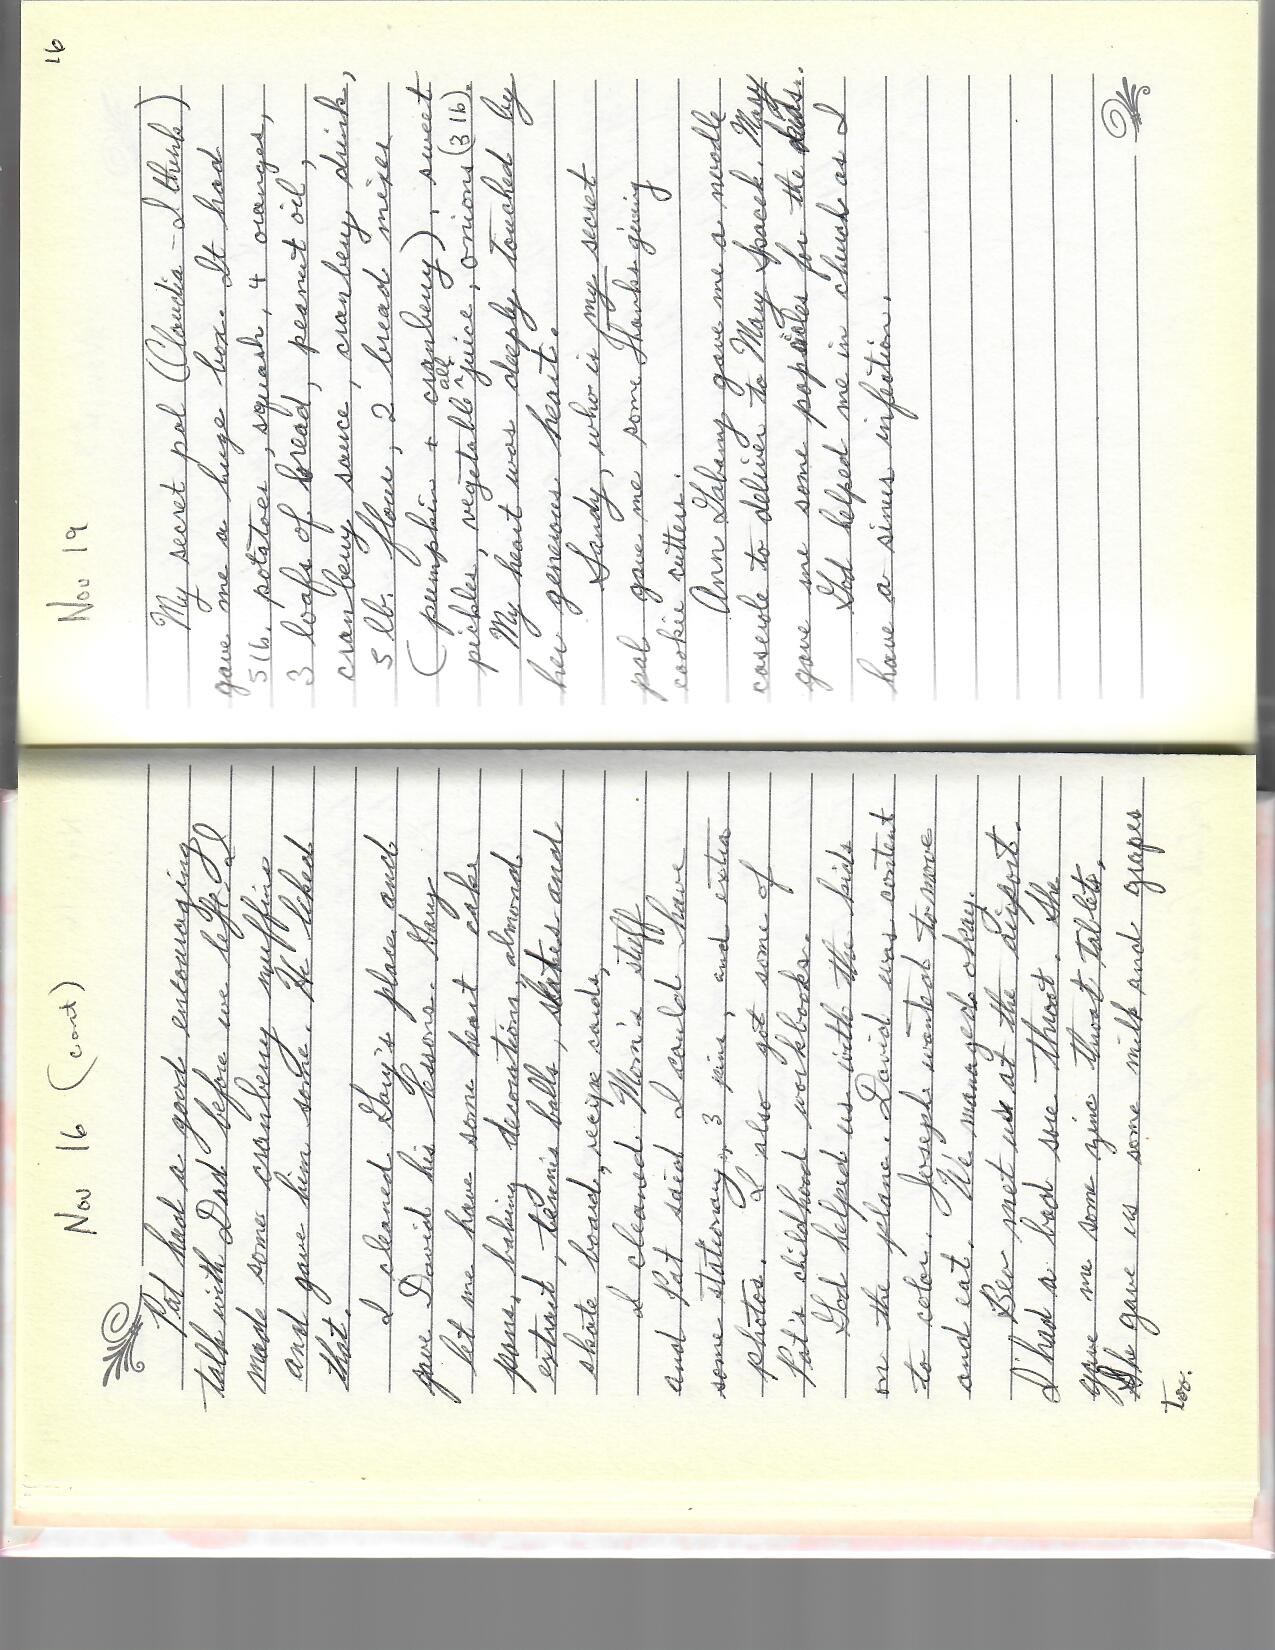 Nov 16 (cont)
Pat had a good encouraging
talk with Dad before we left. I
made some cranberry muffins
and gave him some. He liked
that.
I cleaned Gary's place and
gave David his lessons. Gary
let me have some heart cake
pans, baking decorations, almond
extract, tennis balls, skates and
skate board, recipe cards,
I cleaned Mom's stuff
and Pat said I could have
some stationary, 3 pins, and extra
photos. I also got some of
Pat's childhood workbooks.
God helped us with the kids
on the plane. David was content
to color. Joseph wanted to move
and eat. We managed okay.
Bev met us at the airport.
I had a bad sore throat. She
gave me some zinc throat tablets.
She gave us some milk and grapes
too.
16
Nov 19
My secret pal (Claudia - I think)
gave me a huge box. It had
5 lb. potatoes, squash, 4 oranges,
3 loafs of bread, peanut oil,
cranberry sauce, cranberry drink,
5 lb. flour, 2 bread mixes
(pumpkin + cranberry), sweet
pickles, vegetable all juice, onions (3 lb).
My heart was deeply touched by
her generous heart.
Sandy, who is my secret
pal gave me some Thanksgiving
cookie cutters.
Ann Gabany gave me a noodle
caserole to deliver to Mary Spacek. Mary
gave me some popsicles for the kids.
God helped me in church as I
have a sinus infection.